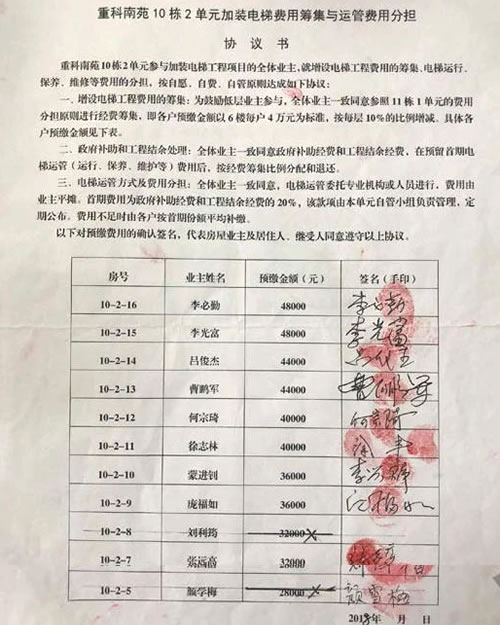 重科南苑10栋2单元加装电梯费用筹集与运管费用分担
协 议 书
重科南苑10栋2单元参与加装电梯工程项目的全体业主,就增设电梯工程费用的筹集、电梯运行、
保养、维修等费用的分担,按自愿、自费、自管原则达成如下协议:
一、增设电梯工程费用的筹集:为鼓励低层业主参与,全体业主一致同意参照11栋1单元的费用
分担原则进行经费筹集,即各户预缴金额以6楼每户4万元为标准,按每层10%的比例增减。具体各
户预缴金额见下表。
二、政府补助和工程结余处理:全体业主一致同意政府补助经费和工程结余经费,在预留首期电
梯运管(运行、保养、维护等)费用后,按经费筹集比例分配和退还。
三、电梯运管方式及费用分担:全体业主一致同意,电梯运管委托专业机构或人员进行,费用由
业主平摊。首期费用为政府补助经费和工程结余经费的20%,该款项由本单元自管小组负责管理,定
期公布。费用不足时由各户按首期份额平均补缴。
以下对预缴费用的确认签名,代表房屋业主及居住人、继受人同意遵守以上协议。
房号 业主姓名 预缴金额(元) 签名(手印)
10-2-16 李必勤 48000 李必勤
10-2-15 李光富 48000 李光富
10-2-14 吕俊杰 44000
10-2-13 曹鹏军 44000 曹鹏军
10-2-12 何宗琦 40000 何宗琦
10-2-11 徐志林 40000
10-2-10 蒙进钊 36000
10-2-9 庞福如 36000
10-2-8 刘利筠 32000
10-2-7 张远高 32000
10-2-5 颜学梅 28000 颜雪梅
月 日